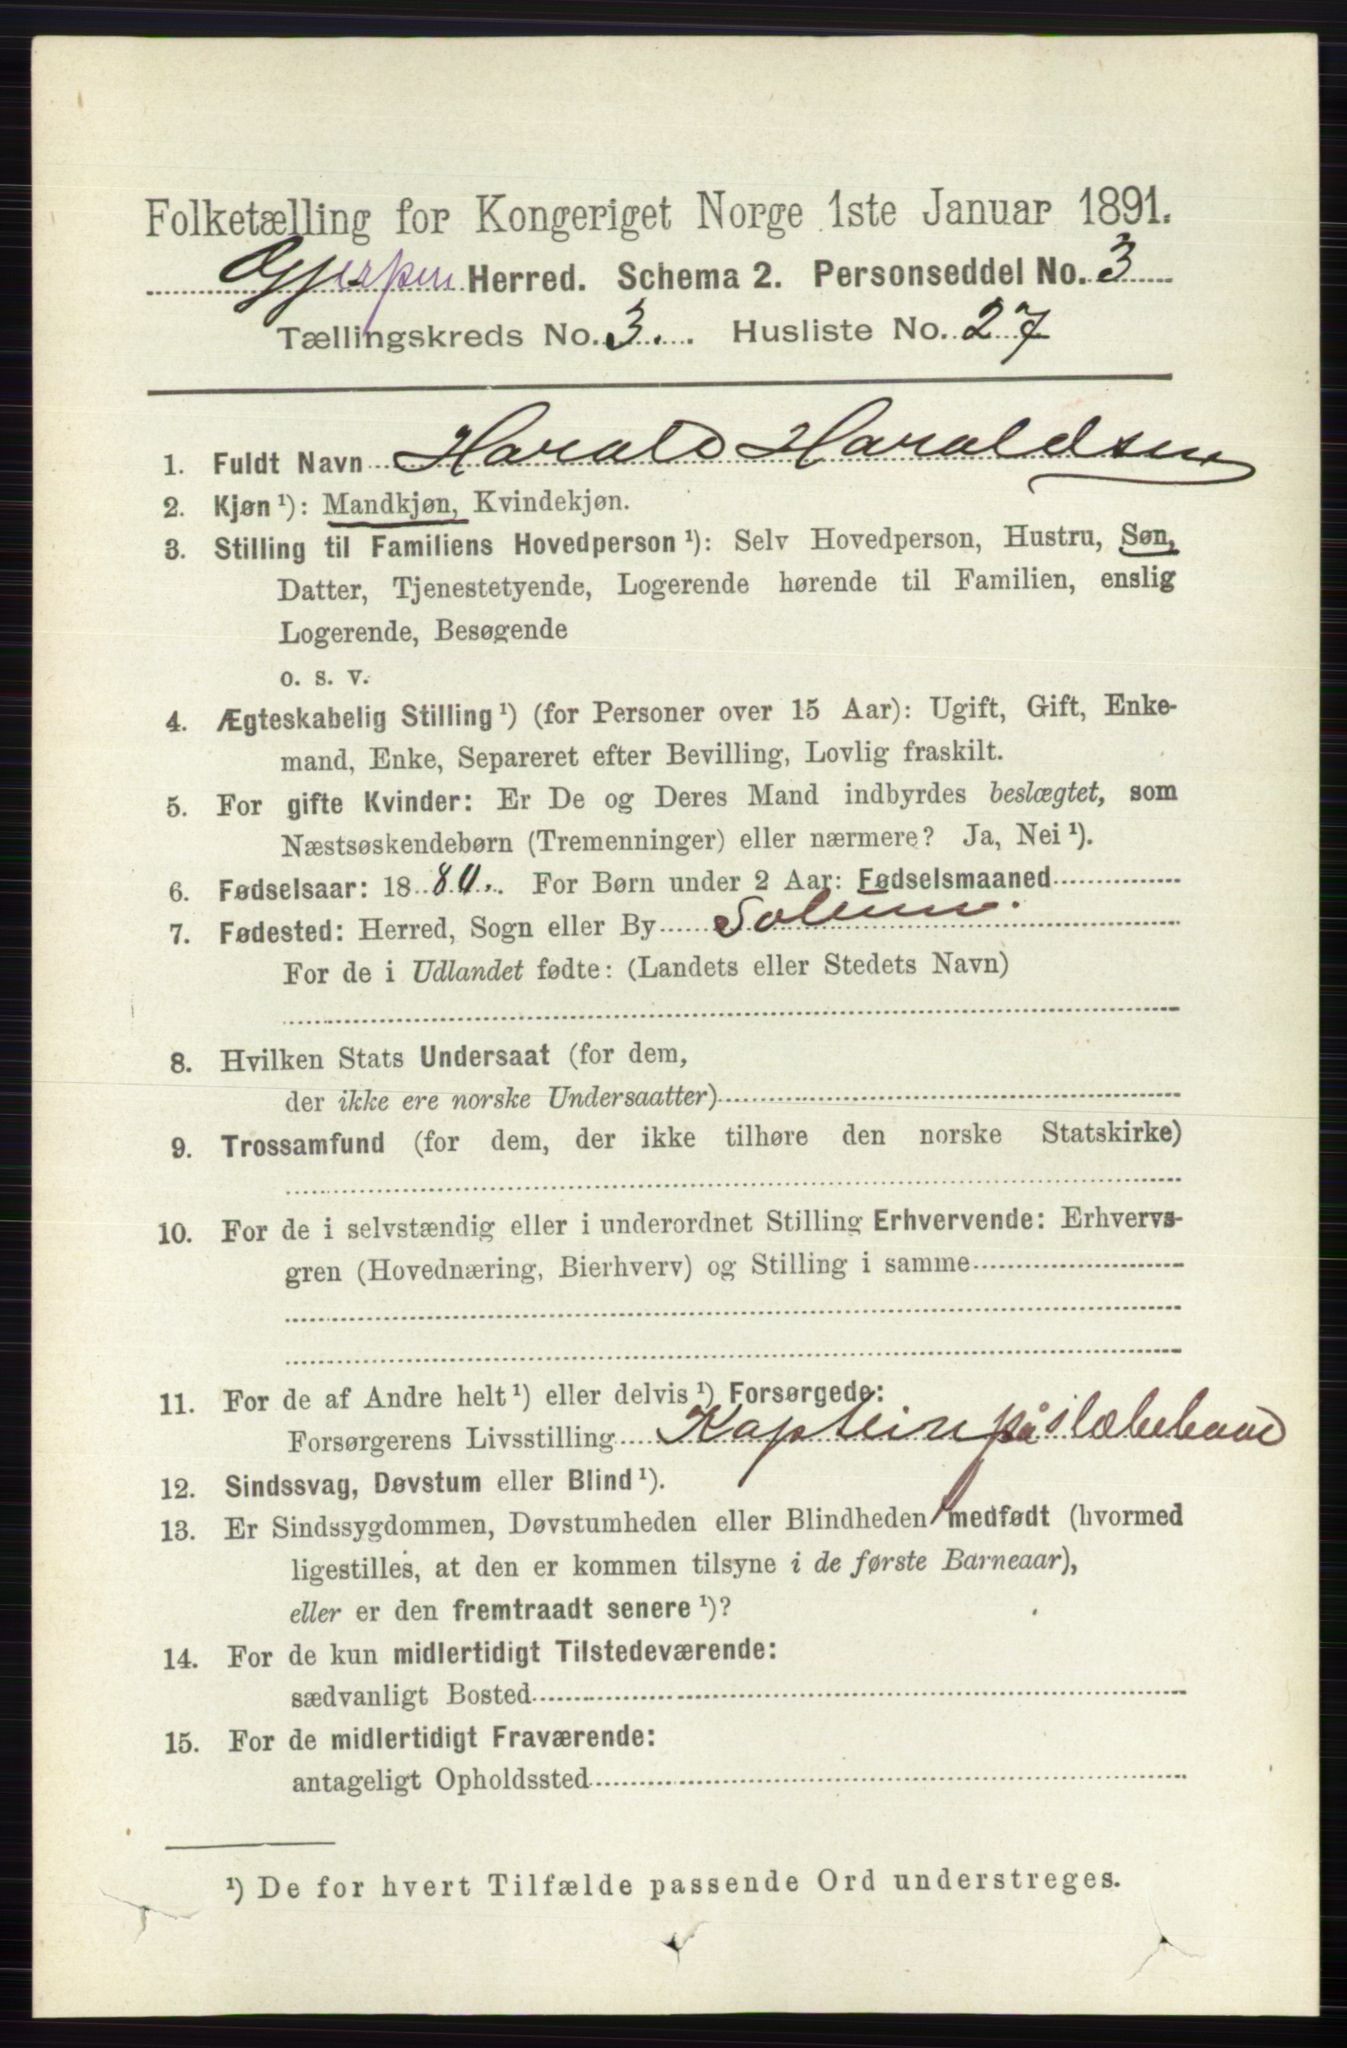 Folketælling for Kongeriget Norge 1ste Januar 1891.
Gjerpen Herred. Schema 2. Personseddel No. 3
Tællingskreds No. 3. Husliste No. 27
1. Fuldt Navn Harald Haraldsen
2. Kjøn ¹): Mandkjøn, Kvindekjøn.
3. Stilling til Familiens Hovedperson ¹): Selv Hovedperson, Hustru, Søn,
Datter, Tjenestetyende, Logerende hørende til Familien, enslig
Logerende, Besøgende
o. s. v.
4. Ægteskabelig Stilling ¹) (for Personer over 15 Aar): Ugift, Gift, Enke-
mand, Enke, Separeret efter Bevilling, Lovlig fraskilt.
5. For gifte Kvinder: Er De og Deres Mand indbyrdes beslægtet, som
Næstsøskendebørn (Tremenninger) eller nærmere? Ja, Nei ¹).
6. Fødselsaar: 18 For Børn under 2 Aar: Fødselsmaaned
7. Fødested: Herred, Sogn eller By Solum.
For de i Udlandet fødte: (Landets eller Stedets Navn)
8. Hvilken Stats Undersaat (for dem,
der ikke ere norske Undersaatter)
9. Trossamfund (for dem, der ikke tilhøre den norske Statskirke)
10. For de i selvstændig eller i underordnet Stilling Erhvervende: Erhvervs-
gren (Hovednæring, Bierhverv) og Stilling i samme
11. For de af Andre helt ¹) eller delvis ¹) Forsørgede:
Forsørgerens Livsstilling Kaptein på slæbebaad
12. Sindssvag, Døvstum eller Blind ¹).
13. Er Sindssygdommen, Døvstumheden eller Blindheden medfødt (hvormed
ligestilles, at den er kommen tilsyne i de første Barneaar),
eller er den fremtraadt senere ¹)?
14. For de kun midlertidigt Tilstedeværende:
sædvanligt Bosted
15. For de midlertidigt Fraværende:
antageligt Opholdssted
¹) De for hvert Tilfælde passende Ord understreges.